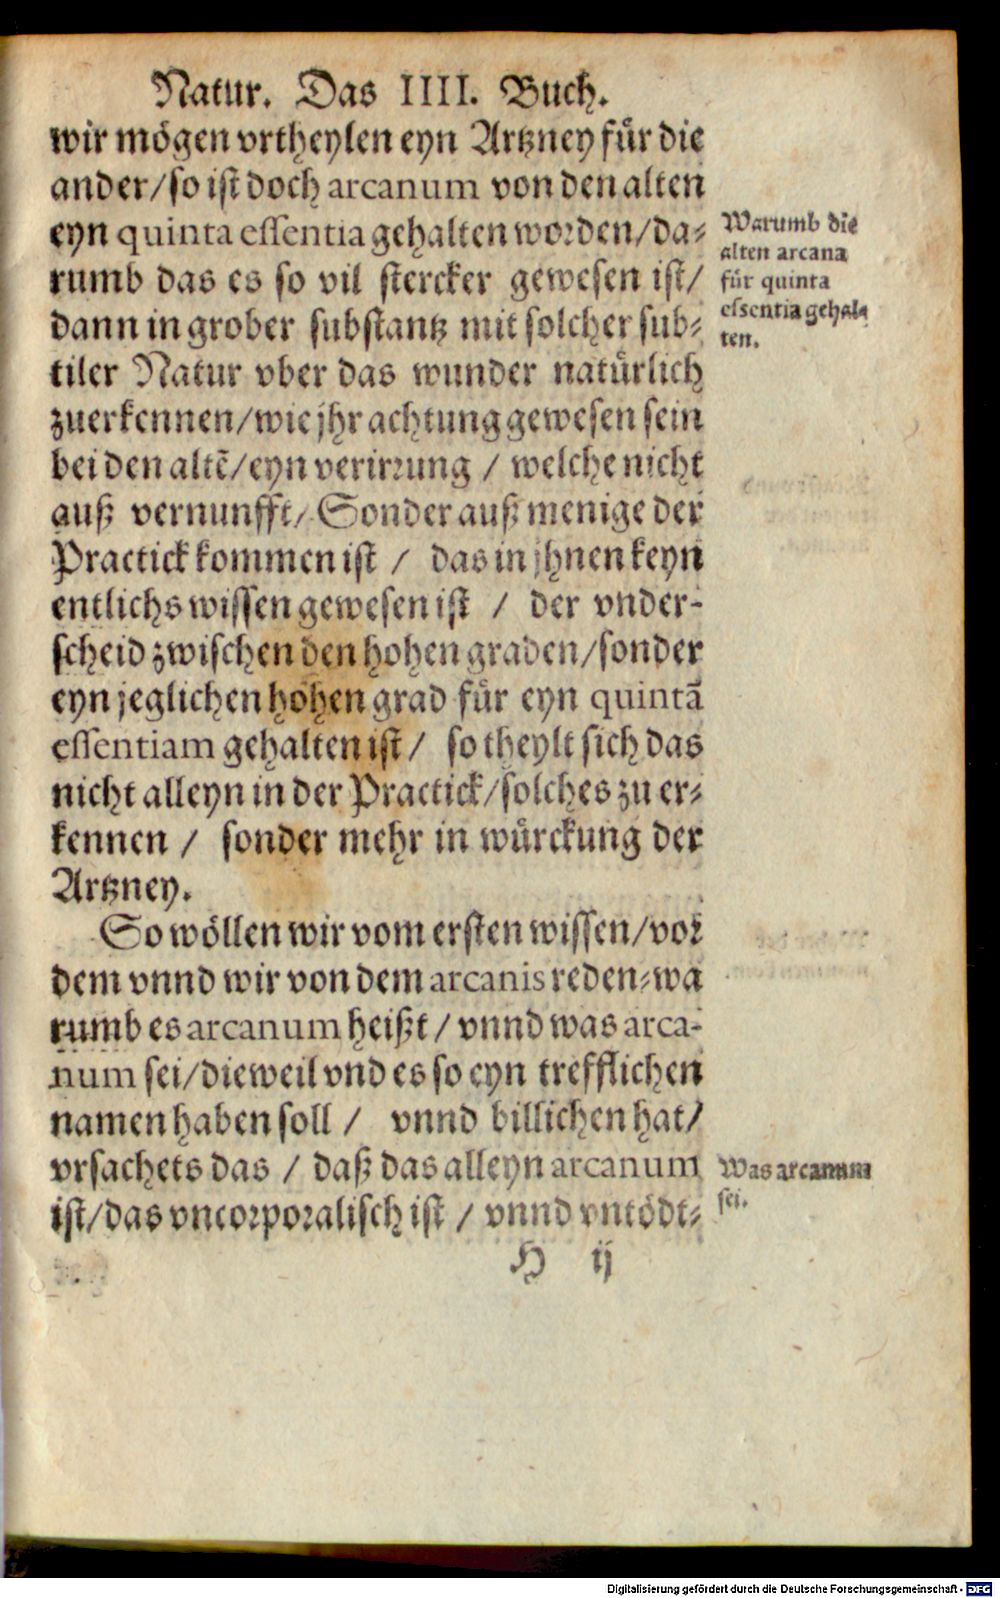 Natur. Das IIII. Buch.
wir mögen vrtheylen eyn Artzney für die
ander/so ist doch arcanum von den alten
eyn quinta essentia gehalten worden/da⸗
rumb das es so vil stercker gewesen ist/
dann in grober substantz mit solcher sub⸗
tiler Natur vber das wunder natürlich
zuerkennen/wie jhr achtung gewesen sein
bei den altẽ/eyn verirrung / welche nicht
auß vernunfft/ Sonder auß menige der
Practick kommen ist / das in jhnen keyn
entlichs wissen gewesen ist / der vnder-
scheid zwischen den hohen graden/sonder
eyn jeglichen hohen grad für eyn quintã
essentiam gehalten ist / so theylt sich das
nicht alleyn in der Practick/solches zu er⸗
kennen / sonder mehr in würckung der
Artzney.
So wöllen wir vom ersten wissen/vor
dem vnnd wir von dem arcanis reden⸗wa
rumb es arcanum heißt / vnnd was arca-
num sei/dieweil vnd es so eyn trefflichen
namen haben soll / vnnd billichen hat/
vrsachets das / daß das alleyn arcanum
ist/das vncorporalisch ist / vnnd vntödt⸗
H ij
Warumb die
alten arcana
für quinta
essentia gehal⸗
ten.
Was arcanum
sei.
Digitalisierung gefördert durch die Deutsche Forschungsgemeinschaft - DFG